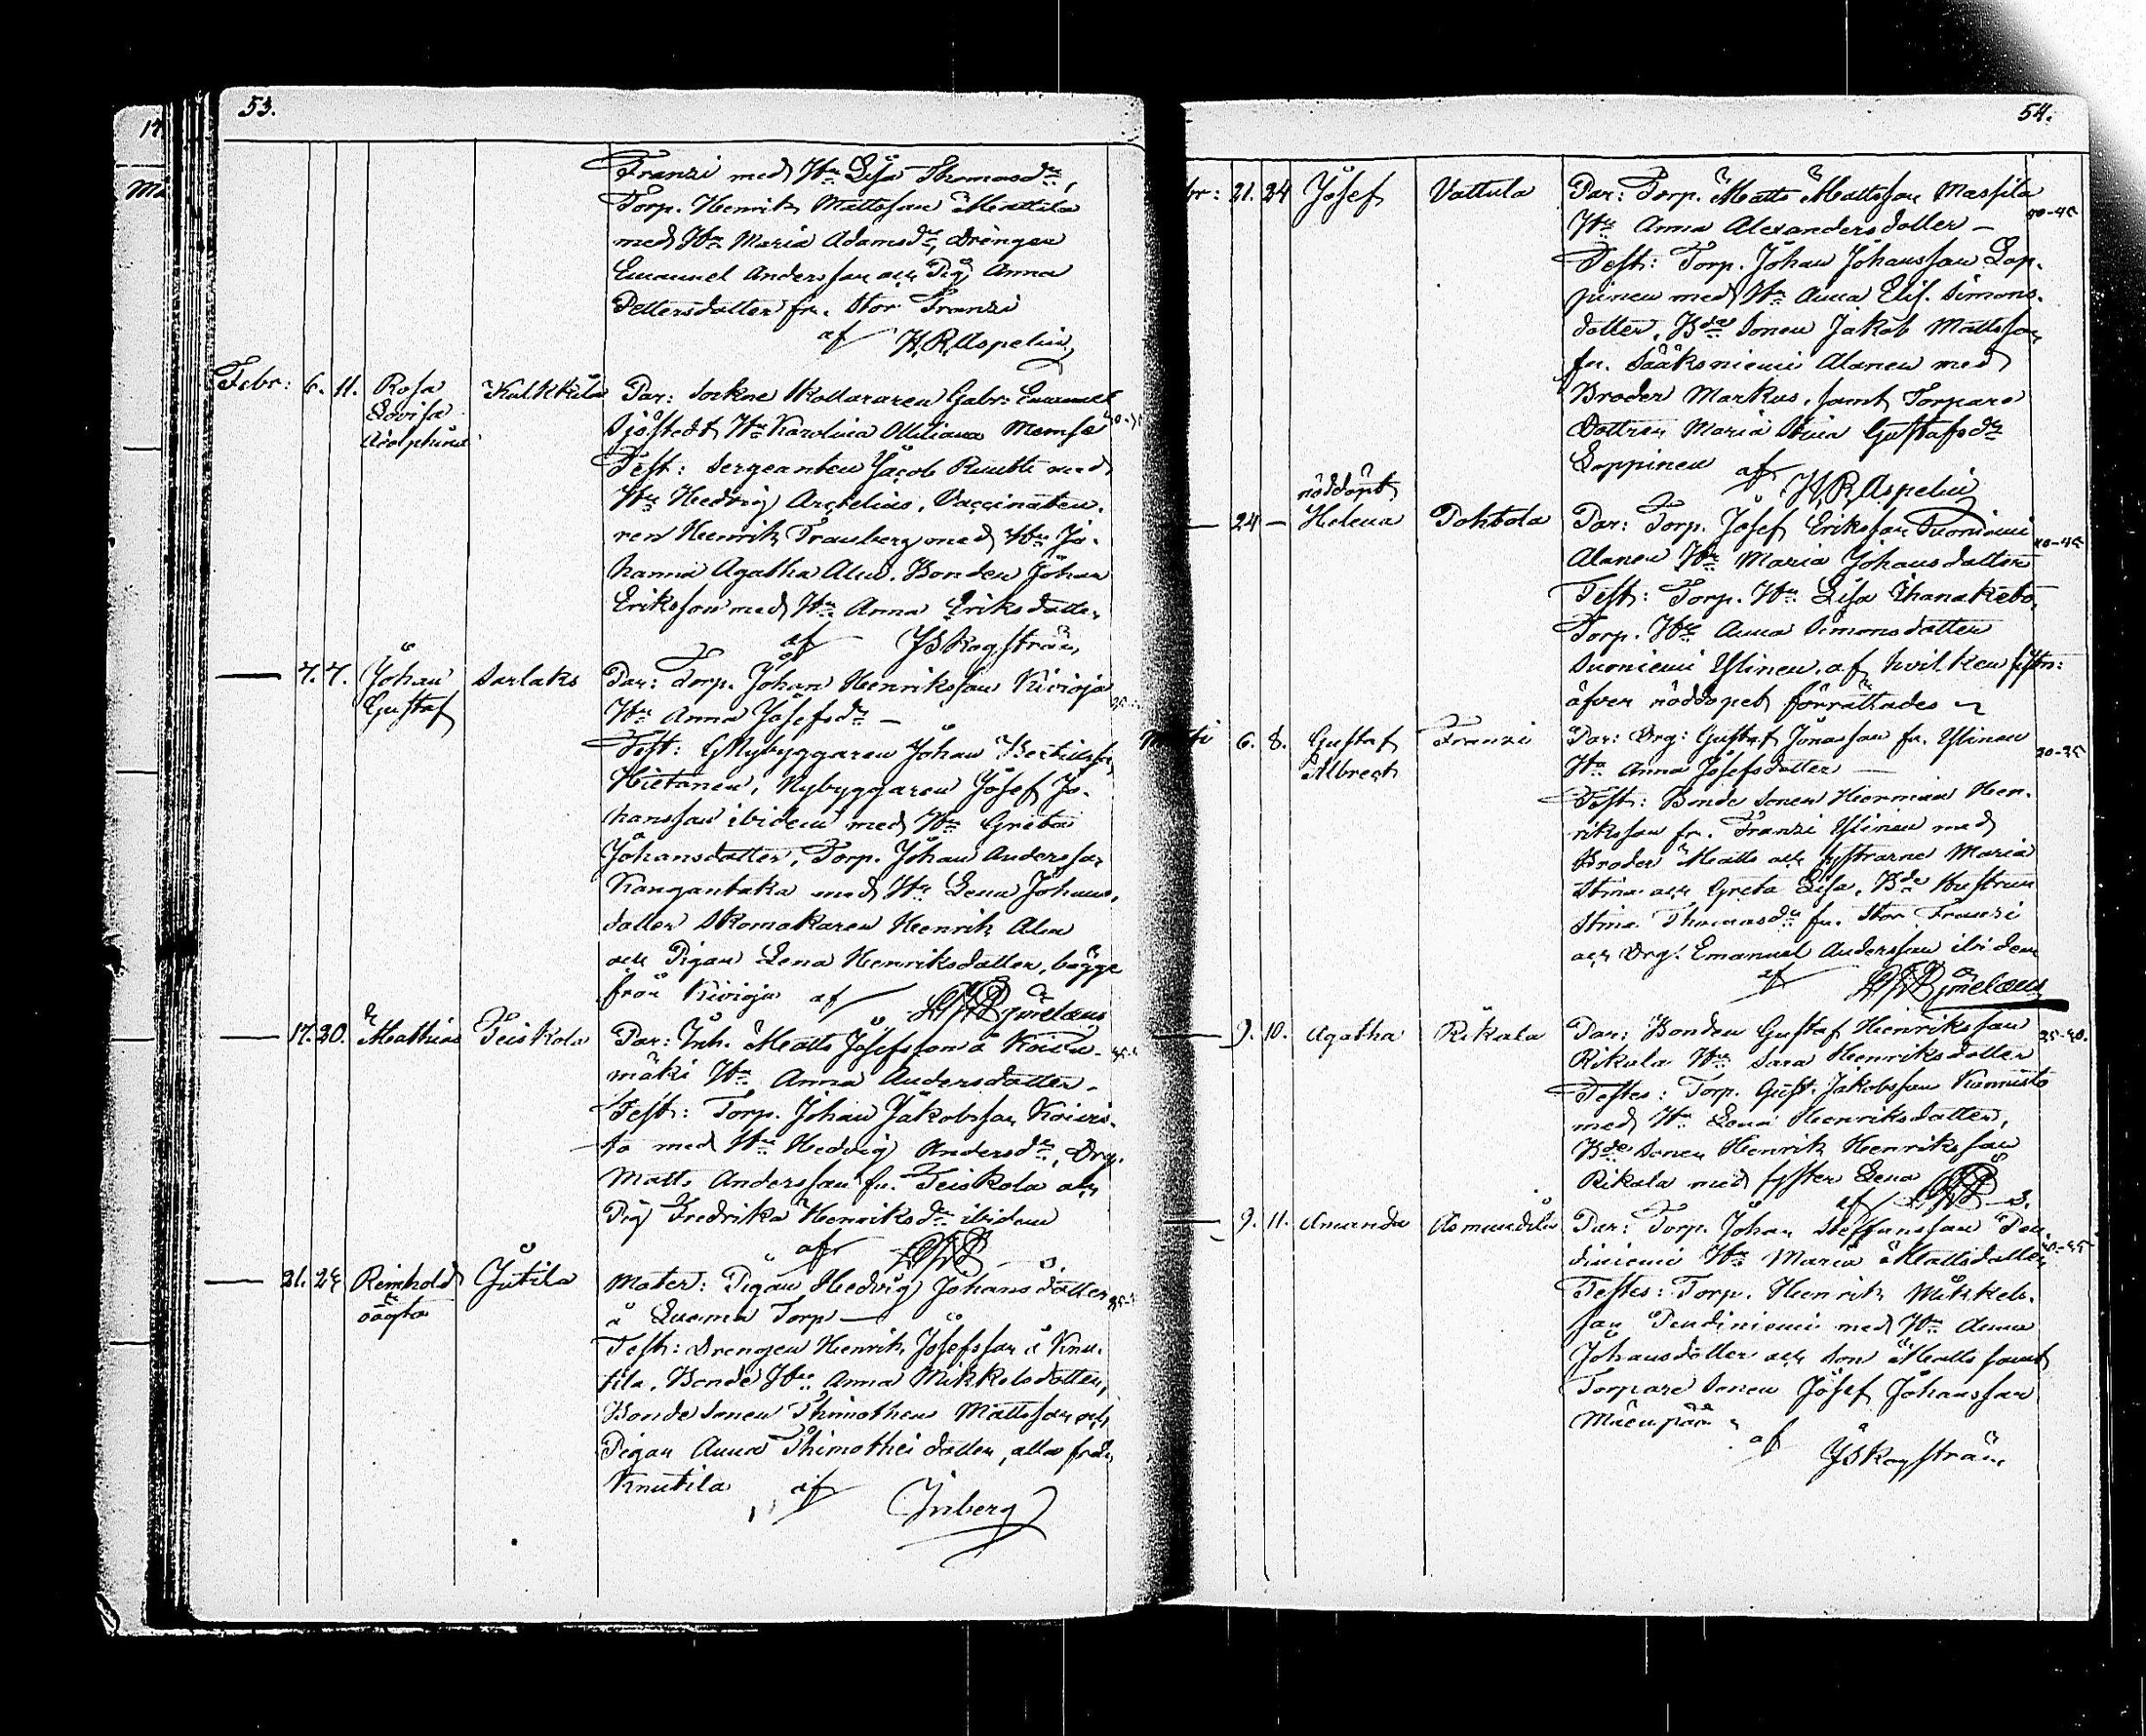 53.
Franzi med H:u Lisa Thomasd:r,
Torp. Henrik Mattsson Mattila
med H:u Maria Adamsd:r, Drängen
Emanuel Andersson och Pig. Anna
Pettersdotter fr. Stor Franzi
af H. R. Aspelin
Febr: 6. 11. Rosa Kulkkila Par: Sockne Skollararen Gabr: Emanuel
Lovisa Sjöstedt H:u Karolina
Adolphina Test: Sergeanten Jacob med
H:u Hedvig Arctelius, Vaccinateu-
ren Henrik Tranberg med H:u Jo-
hanna Agatha Alen. Bonden Johan
Eriksson med H:u Anna Eriksdotter
af JSkogström
— 7. 7. Johan Sarlaks Par: Torp. Johan Henriksson Kivioja
Gustaf H:u Anna Josefsd:r —
Test: Nybyggaren Johan Bertilsson
Hietanen, Nybyggaren Josef Jo-
hansson ibidem med H:u Greta
Johansdotter, Torp. Johan Andersson
Kangantaka med H:u Lena Johans-
dotter Skomakaren Henrik Alen
och Pigan Lena Henriksdotter, bägge
från Kivioja af
— 17. 20. Mathias Teiskola Par: Inh. Matts Josefsson å Koivu-
mäki H:u Anna Andersdotter —
Test: Torp. Johan Jakobsson Koivis-
to med H:u Hedvig Andersd:r, Drg.
Matts Andersson fr. Teiskola och
Pig Fredrika Henriksd:r ibidem
af
— 21. 24 Reinhold Jutila Mater: Pigan Hedvig Johansdotter
oäGta å Luoma Torp —
Test: Drengen Henrik Josefsson å Knu-
tila, Bonde H:u Anna Mikkelsdotter,
Bonde Sonen Thimotheus Mattsson och
Pigan Anna Thimothei dotter, alla från
Knutila af Inberg
54.
br: 21. 24 Josef Vattula Par: Torp. Matts Mattsson Massila 40-45
H:u Anna Alexandersdotter —
Test: Torp. Johan Johansson Lop-
pinen med H:u Anna Elis. Simons-
dotter, B:de Sonen Jakob Mattsson
fr. Sääksniemi Alanen med
Broder Markus, samt Torpare
Dottren Maria Stina Gustafsd:r
Loppinen af H. R. Aspelin
nöddöpt
— 24 — Helena Pohtola Par: Torp. Josef Eriksson Suoniemi 40-45
Alanen H:u Maria Johansdotter
Test: Torp. H:u Lisa
Torp. H:u Anna Simonsdotter
Suoniemi Ylinen, af hvilken sistn:
äfven nöddopet förrättades
6. 8. Gustaf Franzi Par: Drg: Gustaf Jonasson fr. Ylinen 30-35
Albrect H:u Anna Josefsdotter —
Test: Bonde Sonen Herman Hen-
riksson fr. Franzi Ylinen med
Broder Matts och systrarne Maria
Stina och Greta Lisa, B:de Hustrun
Stina Thomasd:r fr. Stor Franzi
och Drg. Emanuel Andersson ibidem
af
— 9. 10. Agatha Rikala Par: Bonden Gustaf Henriksson 35-40.
Rikala H:u Sara Henriksdotter
Testes: Torp. Gust. Jakobsson Kannisto
med H:u Lena Henriksdotter,
B:de Sonen Henrik Henriksson
Rikala med syster Lena
af
— 9. 11. Amanda Asmundila Par: Torp. Johan Steffansson Pen-
diniemi H:u Maria Mattsdotter
Testes: Torp. Henrik Mikkels-
son Pendiniemi med H:u Anna
Johansdotter och Son Matts samt
Torpare Sonen Josef Johansson
Mäenpää
af JSkogström